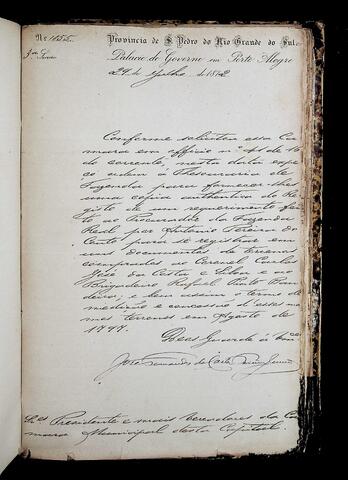 Nº 1655.
Provincia de S. Pedro do Rio Grande do Sul.
Palacio do Governo em Porto Alegre
de Julho de 18
Conforme solicitou essa Ca
mara em officio nº 41 de 16
do corrente, nesta data expe
ço ordem á Thesouraria de
Fazenda para fornecer-lhe
uma copia authentica do Re
gisto de um requerimento fei
to ao Procurador da Fazenda
Real por Antonio Pereira do
Couto para se registrar em
seus documentos de terreno
comprados ao Coronel Carlos
José da Costa e Silva e ao
Brigadeiro Rafael Pinto Ban
deira; e bem assim o termo de
medição e concessão d'esses mes
mos terrenos em Agosto de
1797.
Deus Guarde a
José Fernandes da Costa Pereira Junior
Presidente e mais Vereadores da Ca
mara Municipal desta Capital.